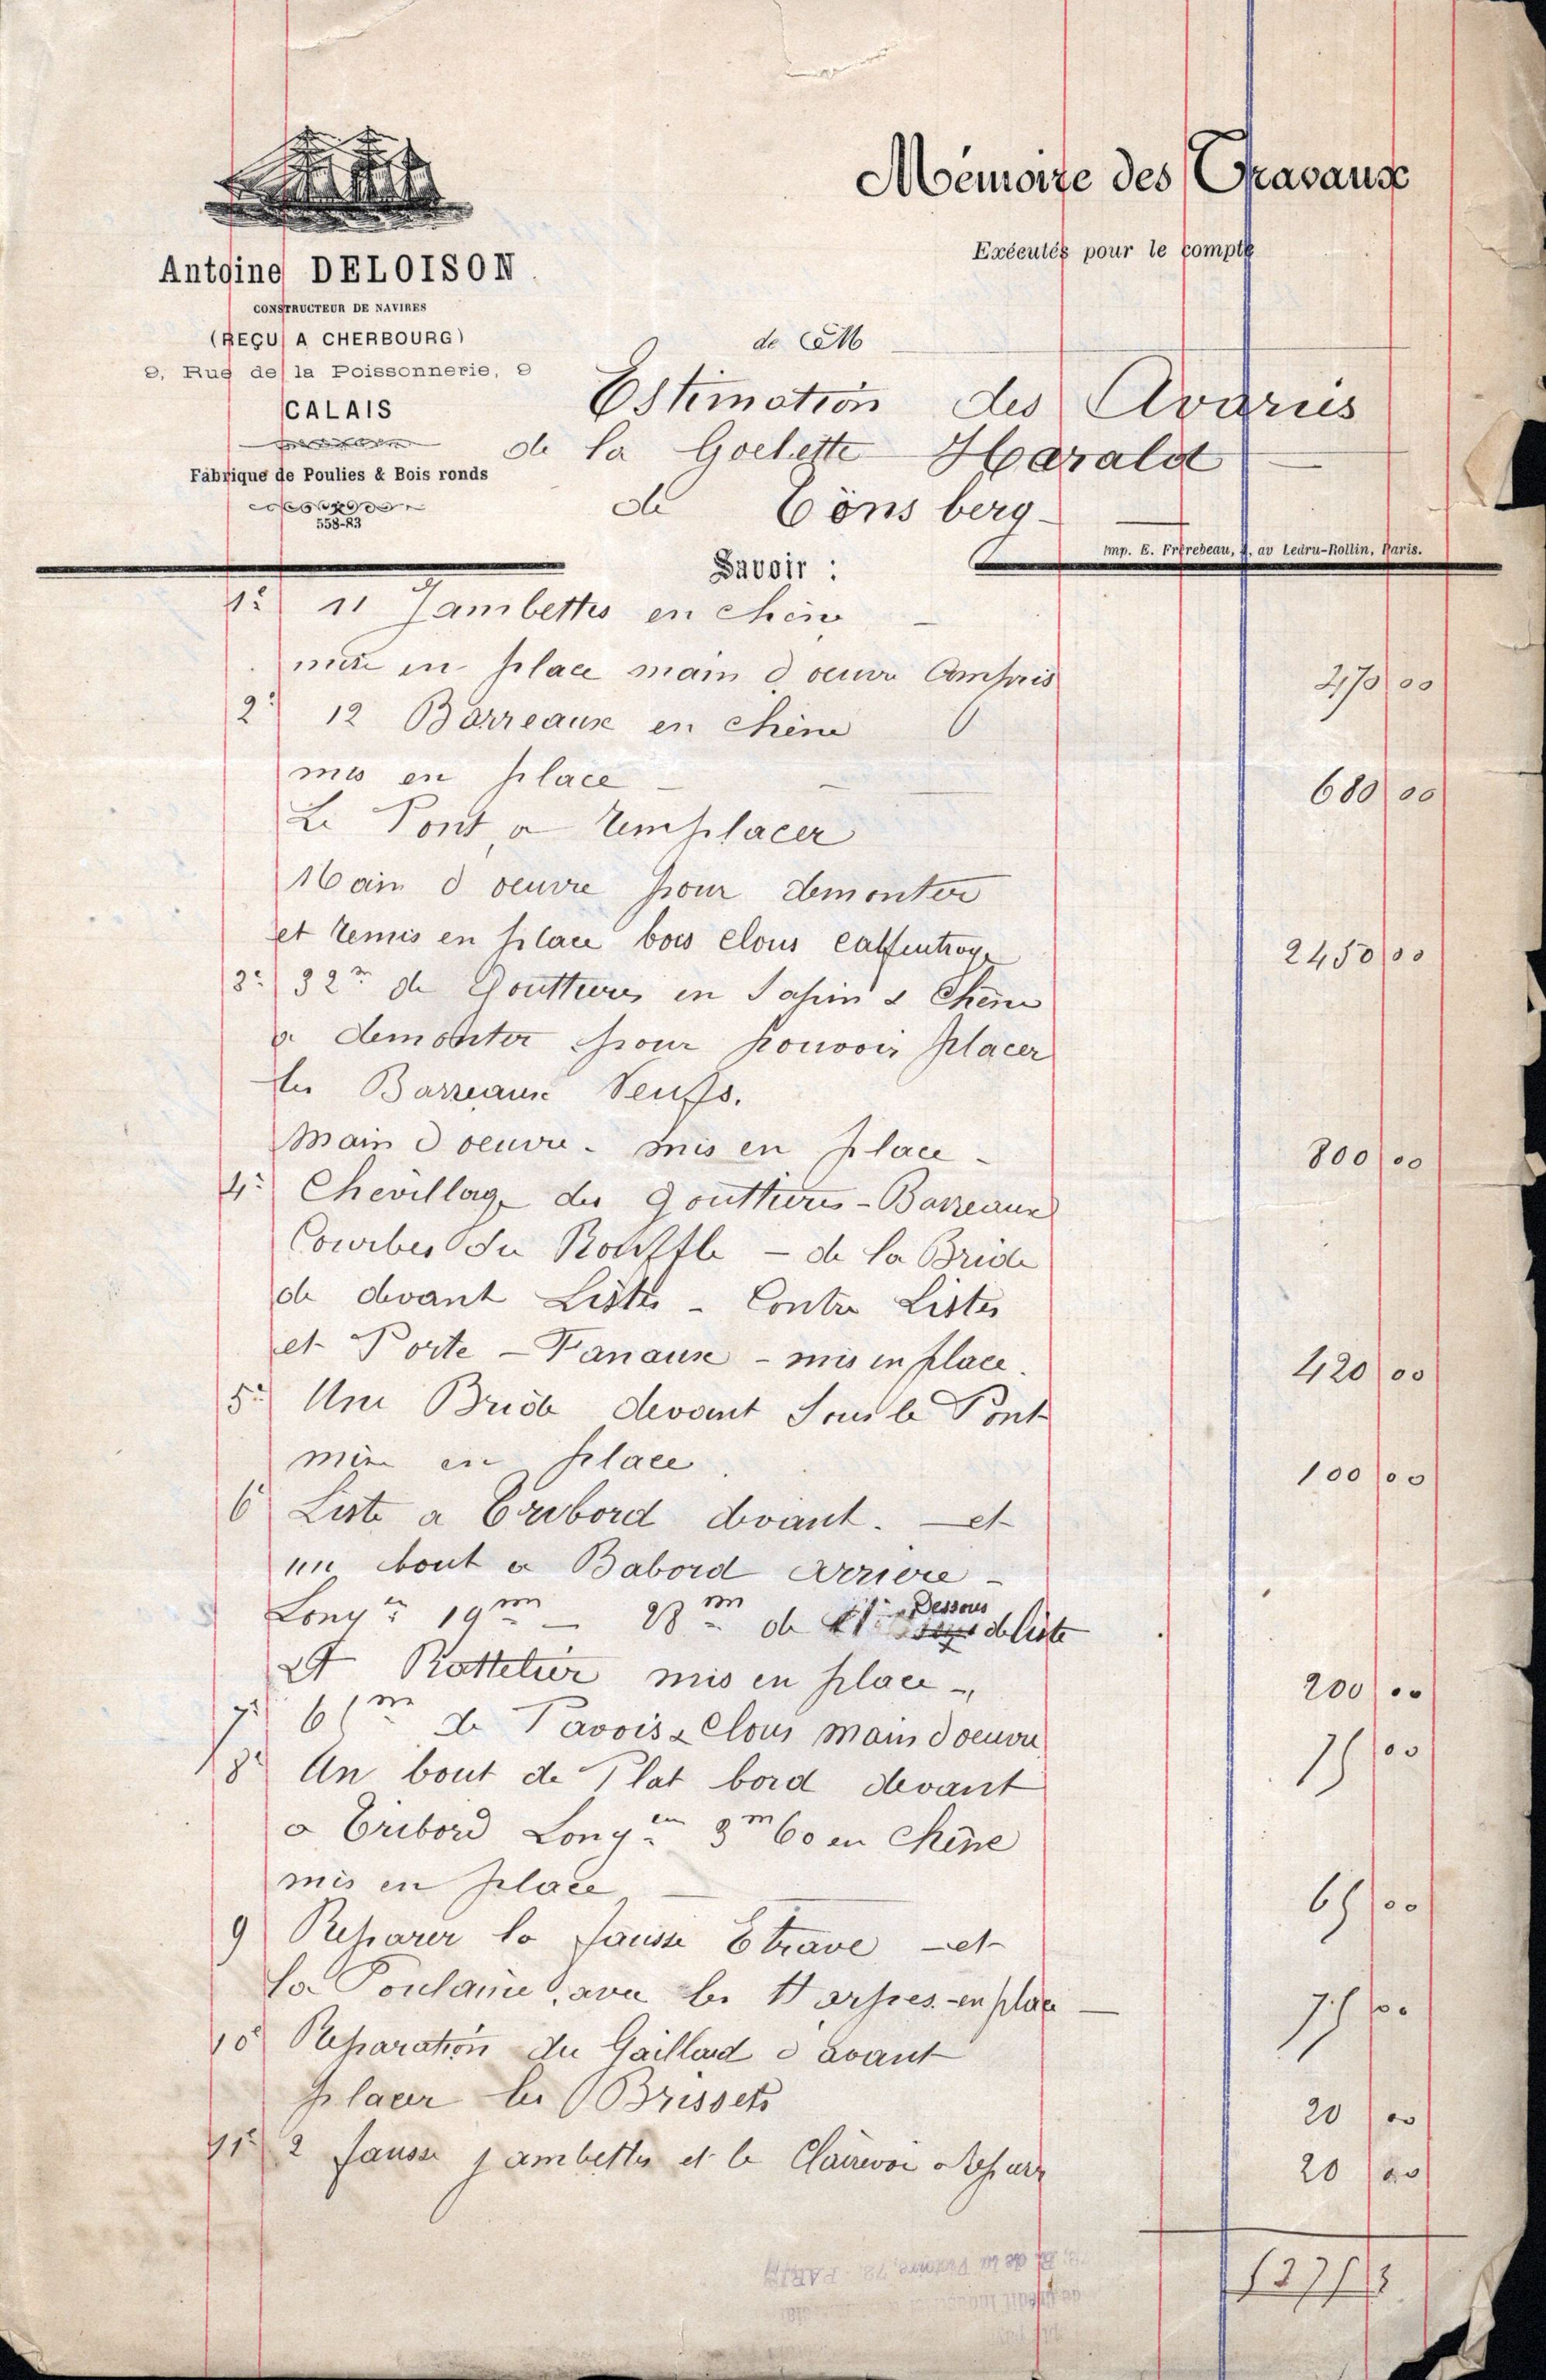 Mémoire des Travaux
Exécutés pour le compte
Antoine DELOISON
CONSTRUCTEUR DE NAVIRES
(REÇU A CHERBOURG)
9, Rue de la Poissonnerie, 9
CALAIS
Fabrique de Poulies & Bois ronds
558-83
de M
Estimation des Avaries
de la Goelette Harald
de Tönsberg
Imp. E. Frérebeau, av Ledru-Rollin, Paris.
Savoir :
1º 11 Jambettes en chêne
mise en place main d oeuvre Compris 470 00
2º 12 Barreaux en chêne
mis en place 680 00
Le Pont, a remplacer
Main d oeuvre pour demonter
et remis en place bois clous calfeutrage 2450 00
3º 32m de Gouttieres en Sapin & Chêne
a demonter pour pouvoir placer
les Barreaux Neufs.
Main d oeuvre - mis en place - 800 00
4º Chevillage des Gouttieres - Barreaux
Courbes du Rouffle - de la Bride
de devant Listes - Contre Listes
et Porte - Fanaux - mis en place. 420 00
5º Une Bride devant Sous le Pont
mise en place 100 00
6º Liste a Tribord devant. - et
un bout a Babord Arriere -
Longr 19m - 28m de Dessous de liste
et Rattelier mis en place - 200 00
7º 61m de Pavois & Clous main d oeuvre 75 00
8º Un bout de Plat bord devant
a Tribord Longr 3m 60 en Chêne
mis en place 65 00
9 Reparer la fausse Etrave - et
la Poulaine, avec les Harpes - en place 75 00
10º Reparation du Gaillard d avant
placer les Brissets 20 00
11º 2 fausse jambettes et le Clairevoi Repare 20 00
5375